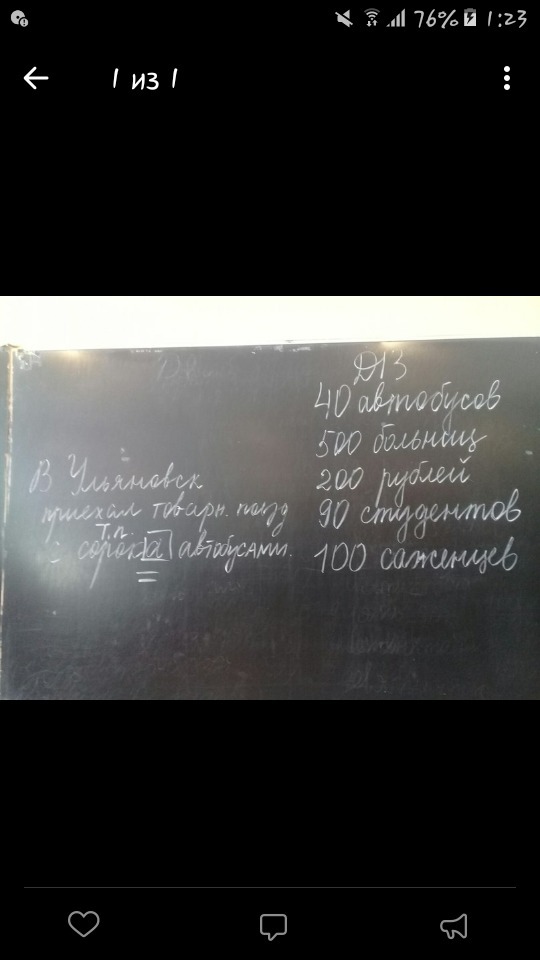 76% 1:23
1 из 1
ДЗ
40 автобусов
500 больниц
200 рублей
90 студентов
100 саженцев
В Ульяновск
приехал товарн. поезд
Т.п.
с сорока автобусами.